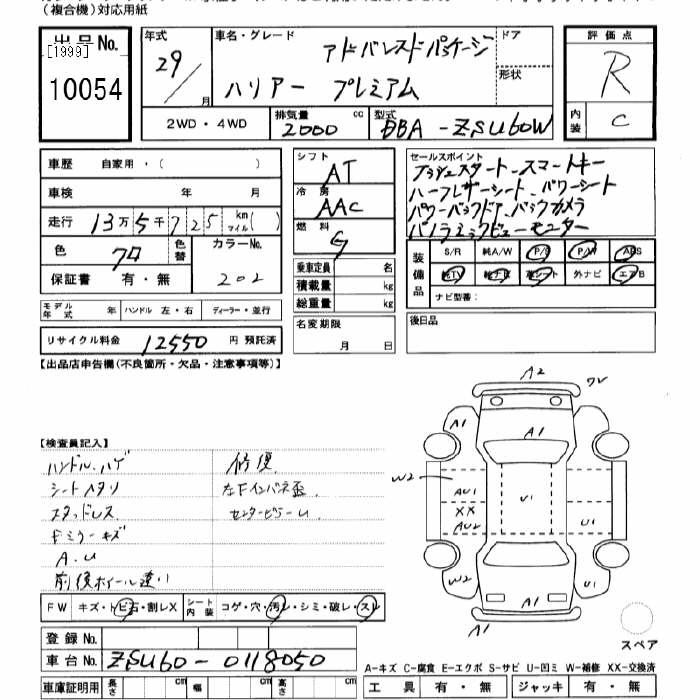 (複合機)対応用紙
出品No.
[1999]
10054
年式 29/ 月
車名・グレード アドバンスドパッケージ
ハリアー プレミアム
ドア
形状
評価点
R
内装 C
2WD・4WD
排気量 2000 cc
型式 DBA-ZSU60W
車歴 自家用・( )
車検 年 月
走行 13万5千725 km マイル( )
色 クロ 色替 カラーNo. 202
保証書 有・無
モデル年式 年 ハンドル 左・右 ディーラー・並行
リサイクル料金 12550 円 預託済
シフト AT
冷房 AAC
燃料 G
乗車定員 名
積載量 kg
総重量 kg
名変期限 月 日
セールスポイント
プッシュスタート、スマートキー
ハーフレザーシート、パワーシート
パワーバックドア、バックカメラ
パノラミックビューモニター
装備品
S/R 純A/W P/S P/W ABS
純TV 純ナビ 革シート 外ナビ エアB
ナビ型番:
後日品
【出品店申告欄(不良箇所・欠品・注意事項等)】
【検査員記入】
ハンドル、ハゲ
シートヘタリ
スタッドレス
Fミラーキズ
A.U
前後ホイール違い
修復
左Fインパネ歪
センターピラーU
FW キズ・トビ石・割レX シート内装 コゲ・穴・汚レ・シミ・破レ・スレ
登録No.
車台No. ZSU60-0118050
車庫証明用 長さ cm 幅 cm 高さ cm
A2
A1
A1
W2
AU1
XX
AU2
U1
U1
W2
A1
U1
A1
スペア
A-キズ C-腐食 E-エクボ S-サビ U-凹ミ W-補修 XX-交換済
工具 有・無 ジャッキ 有・無